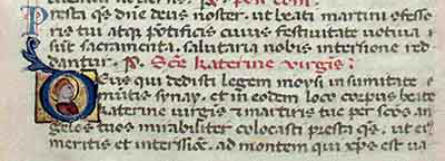 Presta qs dne deus noster. ut beati martini
ris tui atq pontificis cuius festiuitate uotiua
sūt sacramenta. salutaria nobis intersione red
dantur. Sce katerine uirgis:
Deus qui dedisti legem moysi in sumitate
mōtis synay. et in eodem loco corpus beate
katerine uirgis et martiris tue per scōs an
gelos tuos mirabiliter colocasti presta qs. ut ei
meritis et intersiōe. ad montem qui xps est ua